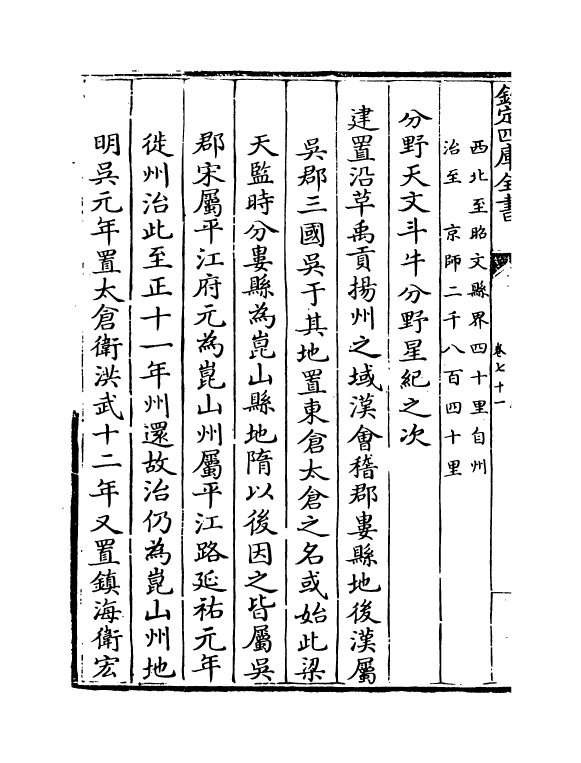 欽定四庫全書
卷七十一
西北至昭文縣界四十里自州
治至　京師二千八百四十里
分野天文斗牛分野星紀之次
建置沿革禹貢揚州之域漢會稽郡婁縣地後漢屬
吳郡三國吳于其地置東倉太倉之名或始此梁
天監時分婁縣為崑山縣地隋以後因之皆屬吳
郡宋屬平江府元為崑山州屬平江路延祐元年
徙州治此至正十一年州還故治仍為崑山州地
明吳元年置太倉衛洪武十二年又置鎮海衛宏